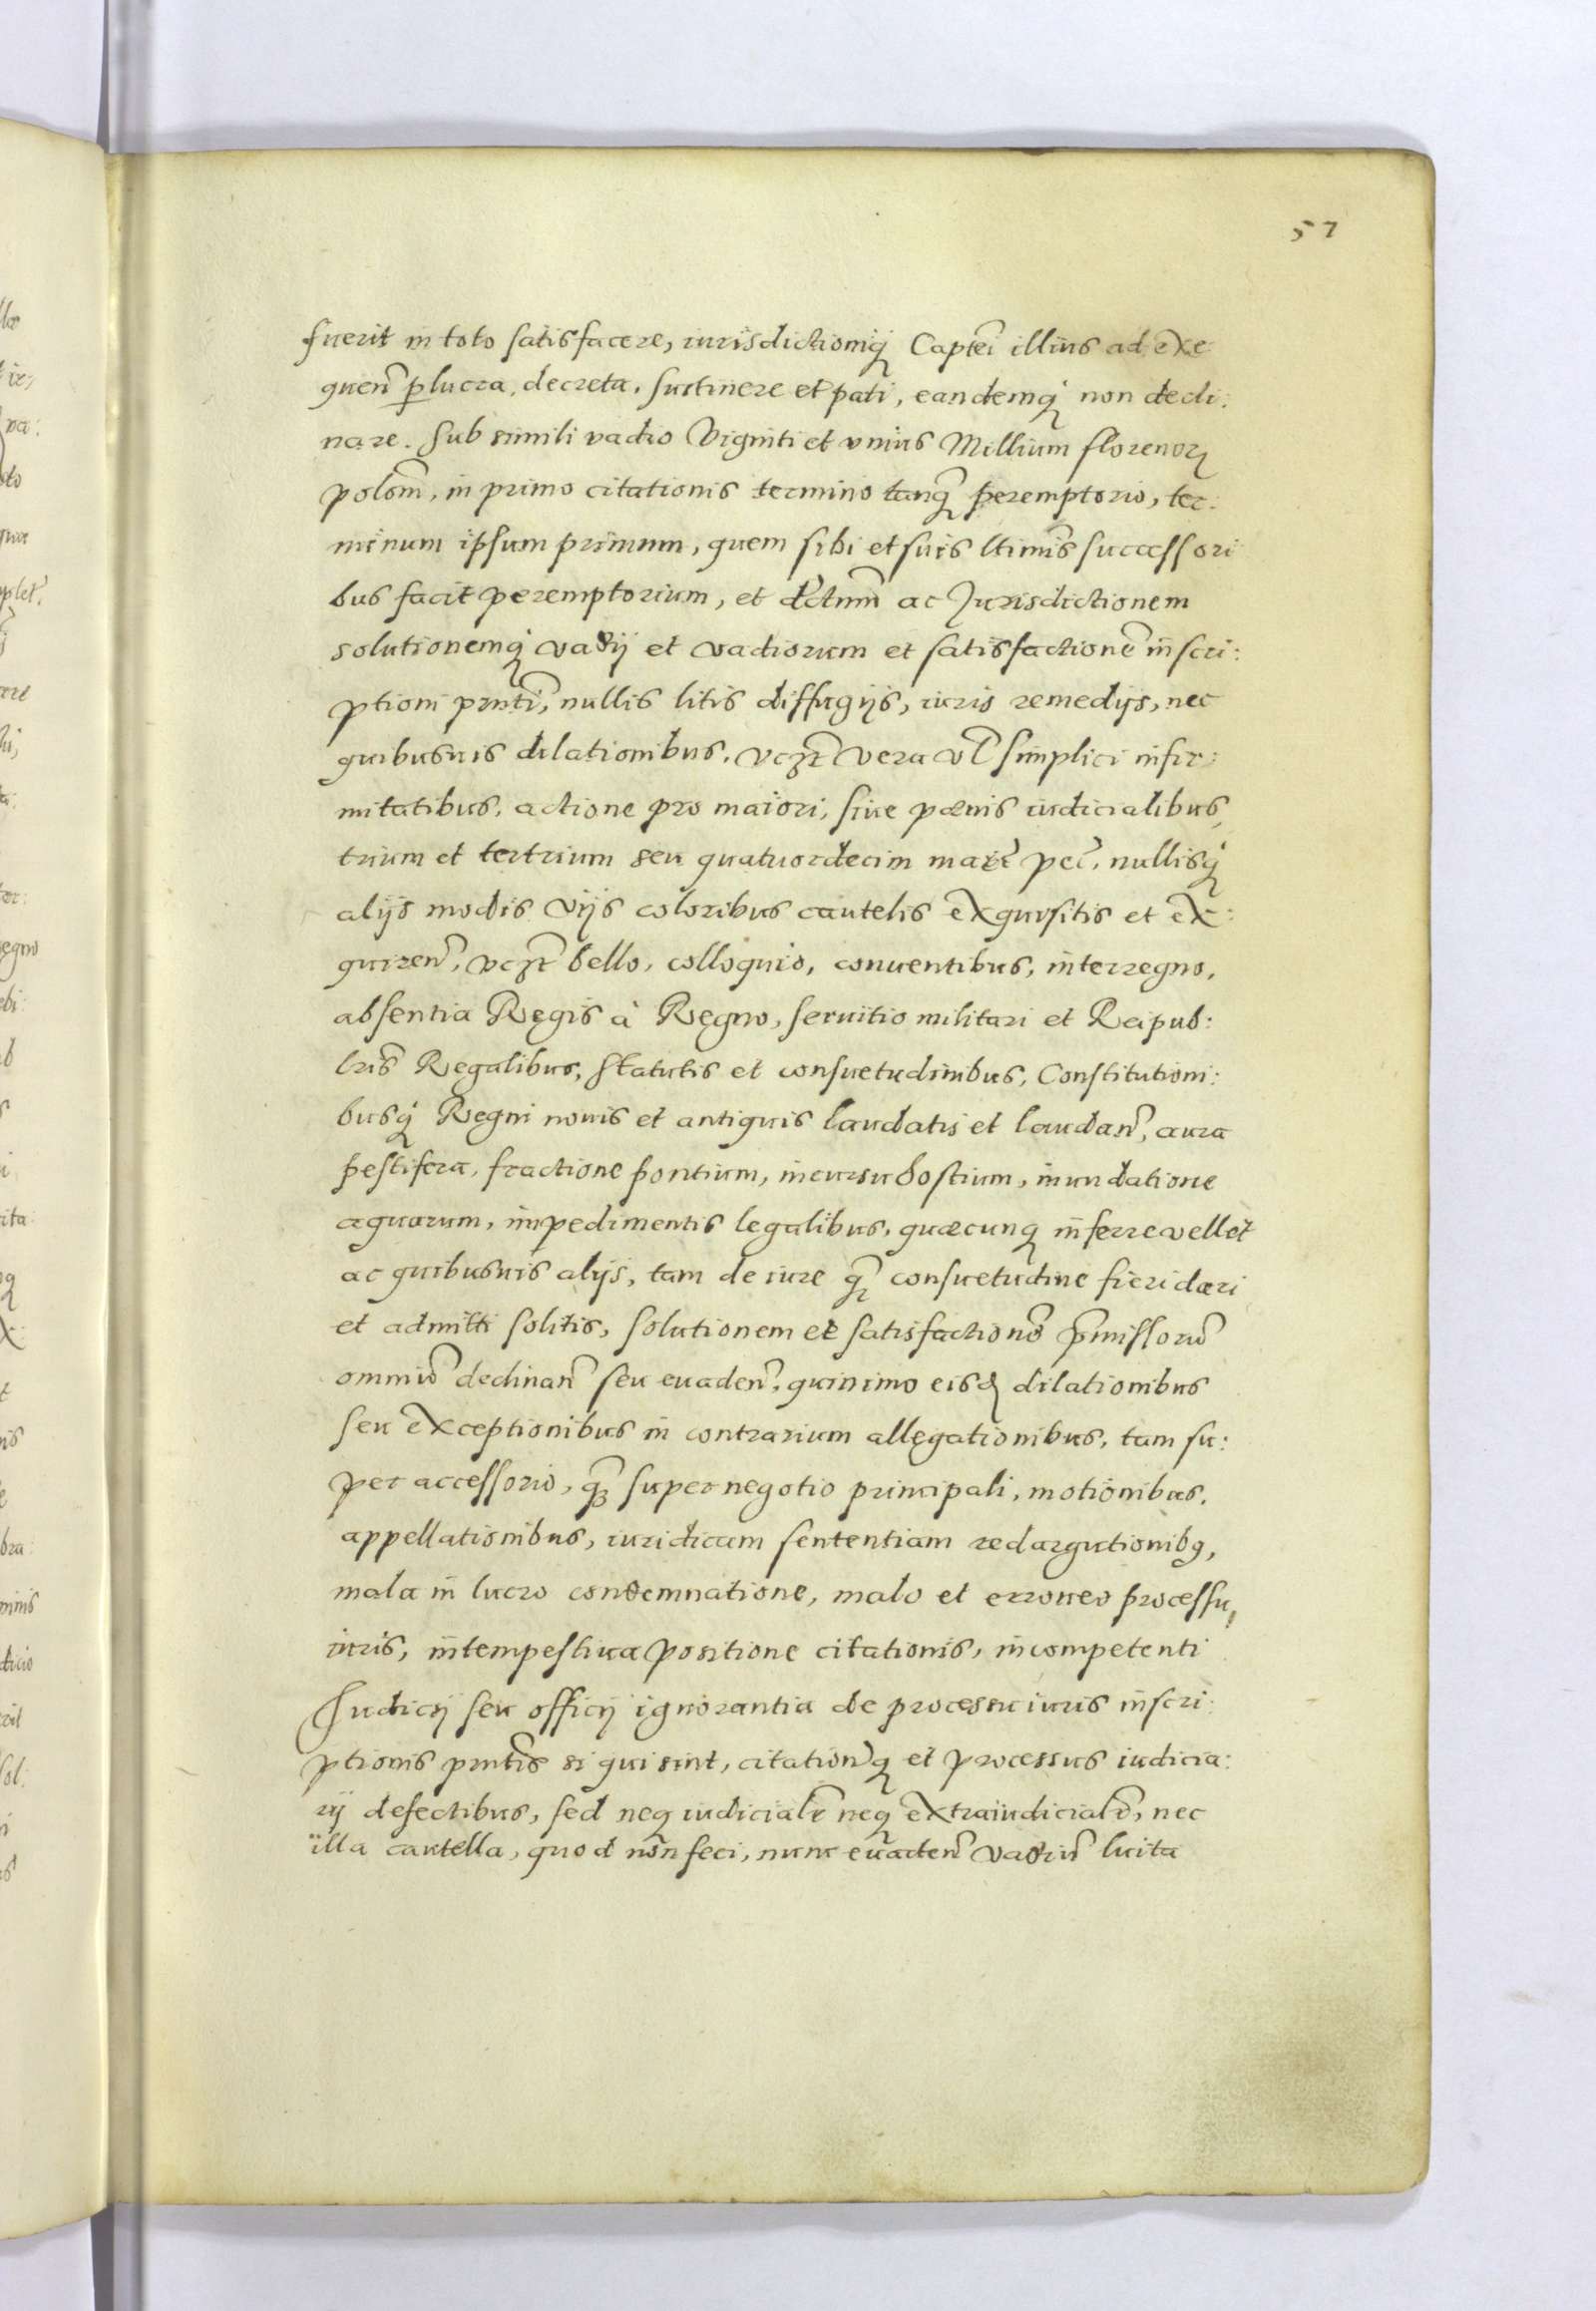 57
fuerit in toto satisfacere, iurisdictioniq Captei illius ad exe
quen per lucra, decreta, sustinere et pati, eandemq non decli:
nare. Sub simili vadio Viginti et unius Millium florenor
polom, in primo citationis termino tanq peremptorio, ter:
minum ipsum primum, quem sibi et suis ltimis successori
bus facit peremptorium, et dctum ac Jurisdictionem
solutionemq vadij et vadiorum et satisfactione inscri:
ptioni pnti, nullis litis diffugijs, iuris remedijs, nec
quibusuis dilationibus, vczt vera vl simplici infir:
mitatibus, actione pro maiori, siue pœnis iudicialibus,
trium et tertrium seu quatuordecim marc pec, nullisq
alijs modis vijs coloribus cautelis exquisitis et ex:
quiren, vczt bello, colloquio, conuentibus, interregno,
absentia Regis à Regno, seruitio militari et Reipub:
lris Regalibus, statutis et consuetudinibus, Constitutioni:
busq Regni nouis et antiquis laudatis et laudan, aura
pestifera, fractione pontium, incursu hostium, inundatione
aquarum, impedimentis legalibus, quæcunq inferre vellet
ac quibusuis alijs, tam de iure q consuetudine fieri dari
et admitti solitis, solutionem et satisfactione pmissoru
omniu declinan seu euaden, quinimo eisd dilationibus
seu exceptionibus in contrarium allegationibus, tam su:
per accessorio, q super negotio principali, motionibus,
appellationibus, iuridicam sententiam redargutionib9,
mala in lucro condemnatione, malo et erroneo processu,
iuris, intempestiua positione citationis, incompetenti
Judicij seu officij ignorantia de processu iuris inscri:
ptionis pntis si qui sint, citationq et processus iudicia:
rij defectibus, sed neq iudicialr neq extraiudicialr, nec
illa cautella, quod non feci, nunc euaden vadiu luita